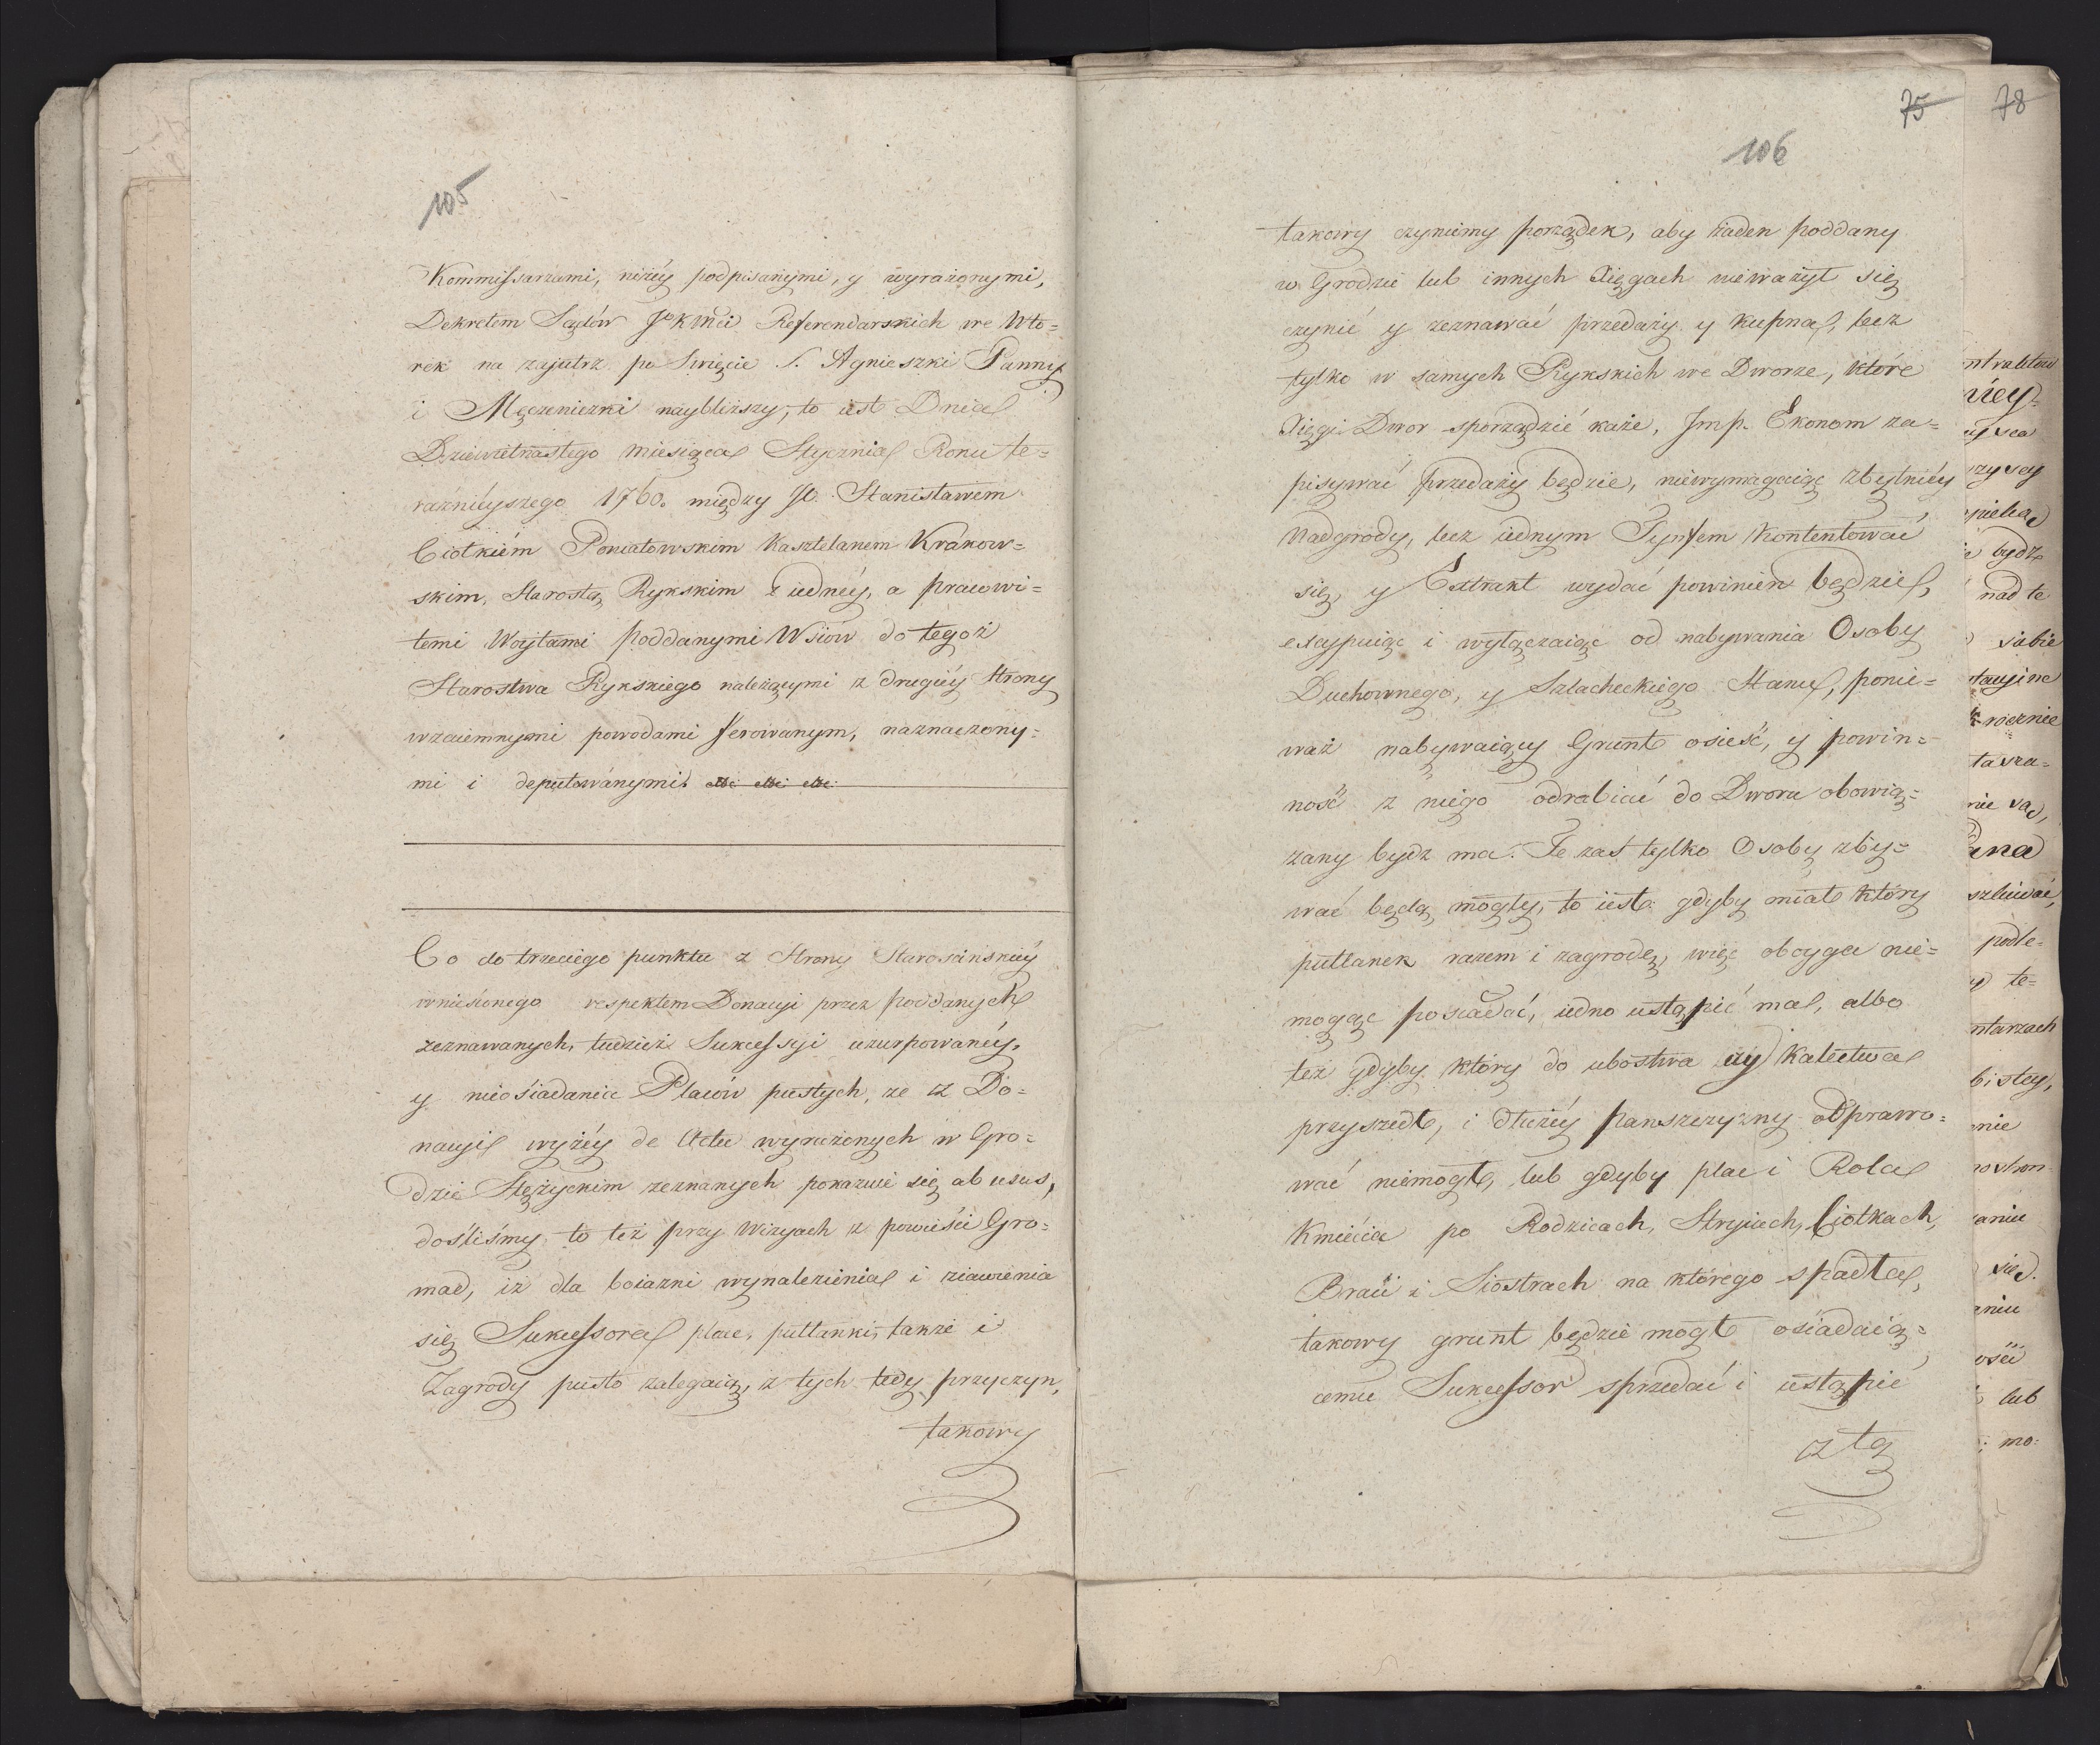 105
Kommissarzami, niżéy podpisanymi, y wyrażonymi,
Dekretem Sądów JoKMci Referendarskich we Wto=
rek na zajutrz po Swięcie S. Agnieszki Panny
i Męczeniczki naybliższy, to iest Dnia
Dziewietnastego miesiąca Stycznia Roku te=
raźnieyszego 1760. między JO. Stanisławem
Ciołkiém Poniatowskim Kasztelanem Krakow=
skim, Starostą Rykskim z iednéy, a pracowi=
temi Woytami poddanymi Wsiów do tegoż
Starostwa Rykskiego należącymi z drugiéy Strony
wzaiemnymi powodami ferowanym, naznaczony=
mi i deputowanymi.
Co do trzeciego punktu z Strony Starościńskiéy
wniesionego respektem Donacyi przez poddanych
zeznawanych, tudzież Sukcessyi uzurpowanéy,
y nieosiadania Placów pustych, że z Do=
nacyi wyżéy de Actu wyrażonych w Gro=
dzie Stężyckim zeznanych pokazuie się abusus,
dośliśmy to też przy Wizyach z powieści Gro=
mad, iż dla boiazni wynalezienia i ziawienia
się Sukcessora place, pułłanki, także i
Zagrody pusto zalegaią, z tych tedy przyczyn,
takowy
75
78
106
takowy czyniemy porządek, aby żaden poddany
w Grodzie lub innych Xięgach nieważył się
czynić y zeznawać przedaży y kupna, lecz
tylko w samych Rykskich we Dworze, które
Xięgi Dwor sporządzić każe, Jmp. Ekonom za=
pisywać przedaży będzie, niewymagaiąc zbytniéy
Nadgrody, lecz iednym Tynfem kontentować
się, y Extrakt wydać powinien będzie,
excypuiąc i wyłączaiąc od nabywania Osoby
Duchownego, y Szlacheckiego Stanu, ponie=
waż nabywaiący Grunt osieść, y powin=
ność z niego odrabiać do Dworu obowią=
zany bydź ma. Te zaś tylko Osoby zby=
wać będą mogły, to iest: gdyby miał który
pułłanek razem i zagrodę, więc oboyga nie=
mogąc posiadać, iedno ustąpić ma, albo
też gdyby który do ubostwa czy kalectwa
przyszedł, i dłużéy panszczyzny odprawo=
wać niemógł, lub gdyby plac i Rola
Kmiecia po Rodzicach, Stryiach, Ciotkach,
Braci i Siostrach na którego spadła,
takowy grunt będzie mógł osiadaią=
cemu Sukcessor sprzedać i ustąpić
z tą